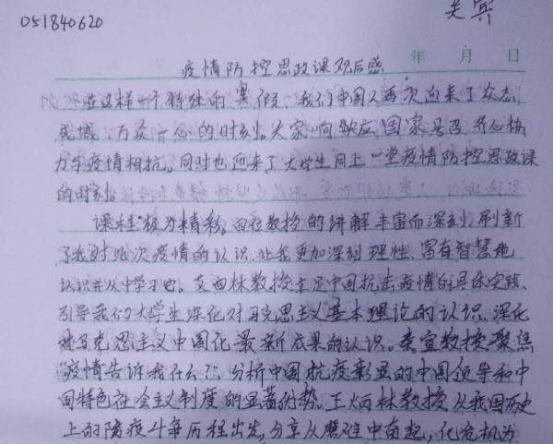 关宾
051840620
年 月 日
疫情防控思政课观后感
在这样一个特殊的寒假,我们中国人再次迎来了众志
成城、万众一心的时刻。大家响应国家号召齐心协
力与疫情相抗。同时也迎来了大学生同上一堂疫情防控思政课
的时刻。
课程极为精彩,四位教授的讲解丰富而深刻,刷新
了我对此次疫情的认识,让我更加深刻、理性、富有智慧地
认识并从中学习它。艾四林教授立足中国抗击疫情的具体实践,
引导我们大学生深化对马克思主义基本理论的认识,深化
对马克思主义中国化最新成果的认识。秦宣教授聚焦
疫情告诉我什么?分析中国抗疫彰显的中国领导和中
国特色社会主义制度的显著优势。王炳林教授从我国历史
上的防疫斗争历程出发,分享从磨难中奋起,化危机为